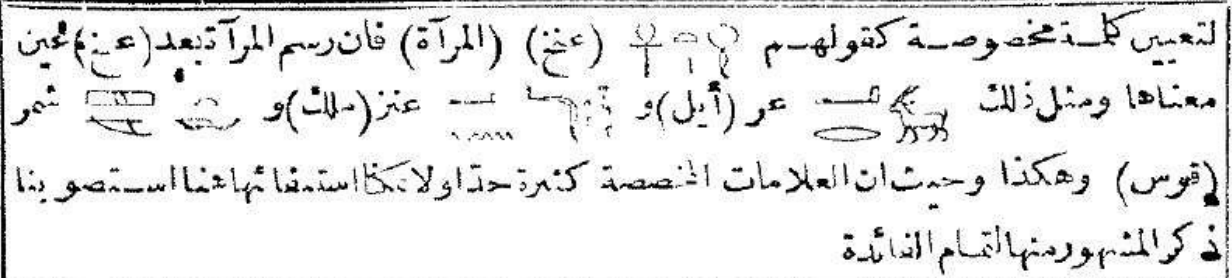 لتعيين كلمة مخصوصة كقولهم (عنخ) (المرآة) فان رسم المرآة بعد (عنخ) تحين
معناها ومثل ذلك عر (أيل) و عنز (ملك) و شمر
(قوس) وهكذا وحيث ان العلامات المخصصة كثيرة جدا ولا يمكننا استيفائها هنا استصوبنا
ذكر المشهور منها لتمام الفائدة